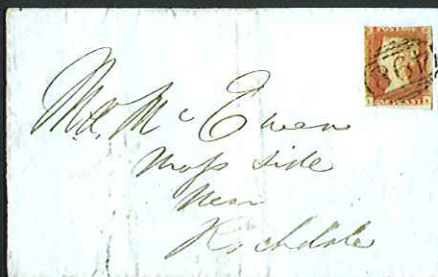 POSTAGE
Mr. Mc Ewen
Moss Side
Near
Rochdale